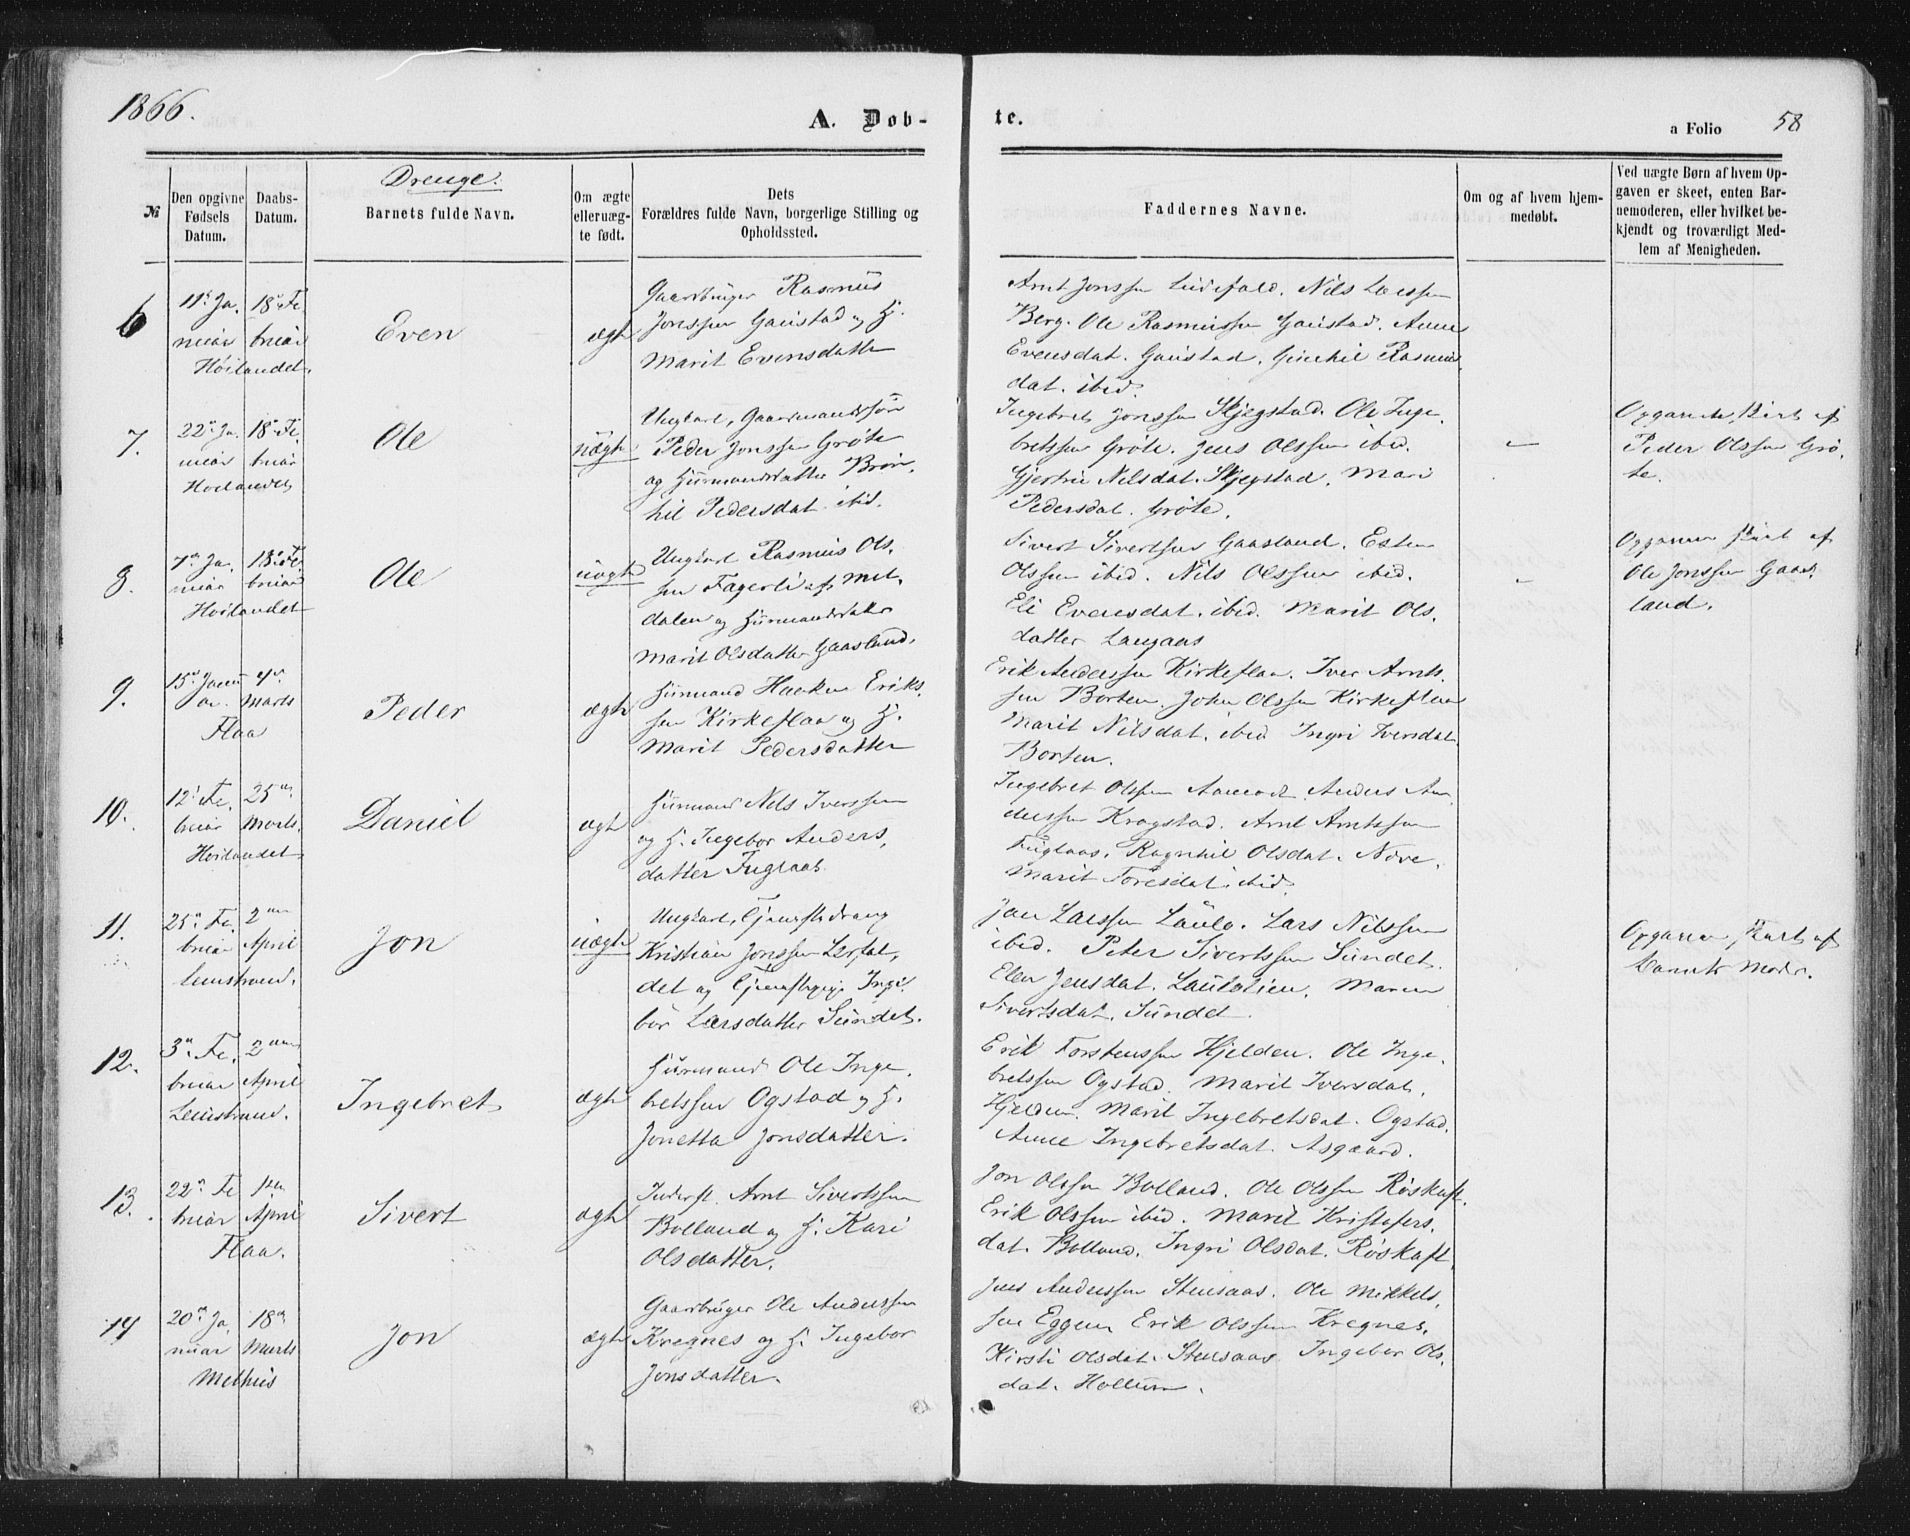 1866.
A. Døb-
te.
a Folio
58
Drenge.
№
Den opgivne
Fødsels
Datum.
Daabs-
Datum.
Barnets fulde Navn.
Om ægte
eller uæg-
te født.
Dets
Forældres fulde Navn, borgerlige Stilling og
Opholdssted.
Faddernes Navne.
Om og af hvem hjem-
medøbt.
Ved uægte Børn af hvem Op-
gaven er skeet, enten Bar-
nemoderen, eller hvilket be-
kjendt og troværdigt Med-
lem af Menigheden.
6
11te Ja.
nuar
Høilandet.
18de Fe
bruar
Even
ægte
Gaardbruger Rasmus
Jonssen Gaustad og H.
Marit Evensdatter
Arnt Jonssen Nils Larssen
Berg. Ole Rasmussen Gaustad. Anne
Evensdat. Gaustad. Gunhil Rasmus
dat. ibid.
7.
22de Ja.
nuar
Høilandet
18de Fe.
bruar
Ole
uægte
Ungkarl, Gaardmandssøn
Peder Jonssen Grøte
og Huusmandsdatter Brøn.
hil Pedersdat. ibid.
Ingebret Jonssen Skjegstad. Ole Inge.
bretssen Grøte. Jens Olssen ibid.
Nilsdat. Skjegstad. Mari
Pedersdat. Grøte.
Opgaven skeet af
Peder Olssen Grø.
te.
8.
7de Ja.
nuar
Høilandet
18de Fe
bruar
Ole
uægte
Ungkarl Rasmus Ols.
sen Fagerli af Mel.
dalen og Huusmandsdatter
Marit Olsdatter Gaasland.
Sivert Sivertsen Gaasland. Esten
Olssen ibid. Nils Olssen ibid.
Eli Evensdat. ibid. Marit Ols.
datter Langaas
Opgaven skeet af
Ole Jonssen Gaas.
land.
9.
15de Janu
ar.
Flaa
4de
Marts
Peder
ægte
Huusmand Haaken Eriks.
sen Kirkeflaa og H.
Marit Pedersdatter
Erik Anderssen Kirkeflaa. Iver Arnts.
sen Borten. John Olssen Kirkeflaa
Marit Nilsdat. ibid Ingri Iversdat.
Borten.
10.
12te Fe.
bruar
Høilandet
25de
Marts.
Daniel
ægte
Huusmand Nils Iverssen
og H. Ingebor Anders.
datter Fuglaas.
Ingebret Olssen Aamodt Anders An
derssen Kragstad. Arnt Arntssen
Fuglaas. Ragnhil Olsdat.
Marit Toresdat. ibid.
11.
25de Fe.
bruar
Leinstrand.
2den
April
Jon
uægte
Ungkarl, Tjenestedreng
Kristian Jonssen
det og Tjenestepige Inge
bor Larsdatter Sundet.
Jon Larssen Laulo. Lars Nilssen
ibid. Peter Sivertssen Sundet.
Elen Jensdat. Laulolien. Maren
Sivertsdat. Sundet.
Opgaven skeet af
Barnets Moder.
12.
3de Fe.
bruar
Leinstrand.
2den
April
Ingebret
ægte
Huusmand Ole Inge.
bretssen Ogstad og H.
Jonetta Jonsdatter.
Erik Torstenssen Hjelden. Ole Inge.
bretssen Ogstad. Marit Iversdat.
Hjelden. Marit Ingebretsdat. Ogstad.
Anne Ingebretsdat. Asgaard.
13.
22de Fe
bruar
Flaa.
1ste
April
Sivert
ægte
Inderst. Arnt Sivertssen
Bolland og H. Kari
Olsdatter.
Jon Olssen Bolland. Ole Olssen Røskaft.
Erik Olssen ibid. Marit Kristofers.
dat. Bolland. Ingri Olsdat. Røskaft.
14
20de Ja.
nuar
Melhus
18de
Marts
Jon
ægte
Gaardbruger Ole Anderssen
Kregnes og H. Ingebor
Jonsdatter.
Jens Anderssen Stensaas. Ole Mikkels.
sen Eggen Erik Olssen Kregnes.
Kirsti Olsdat. Stensaas Ingebor Ols.
dat. Hollum.